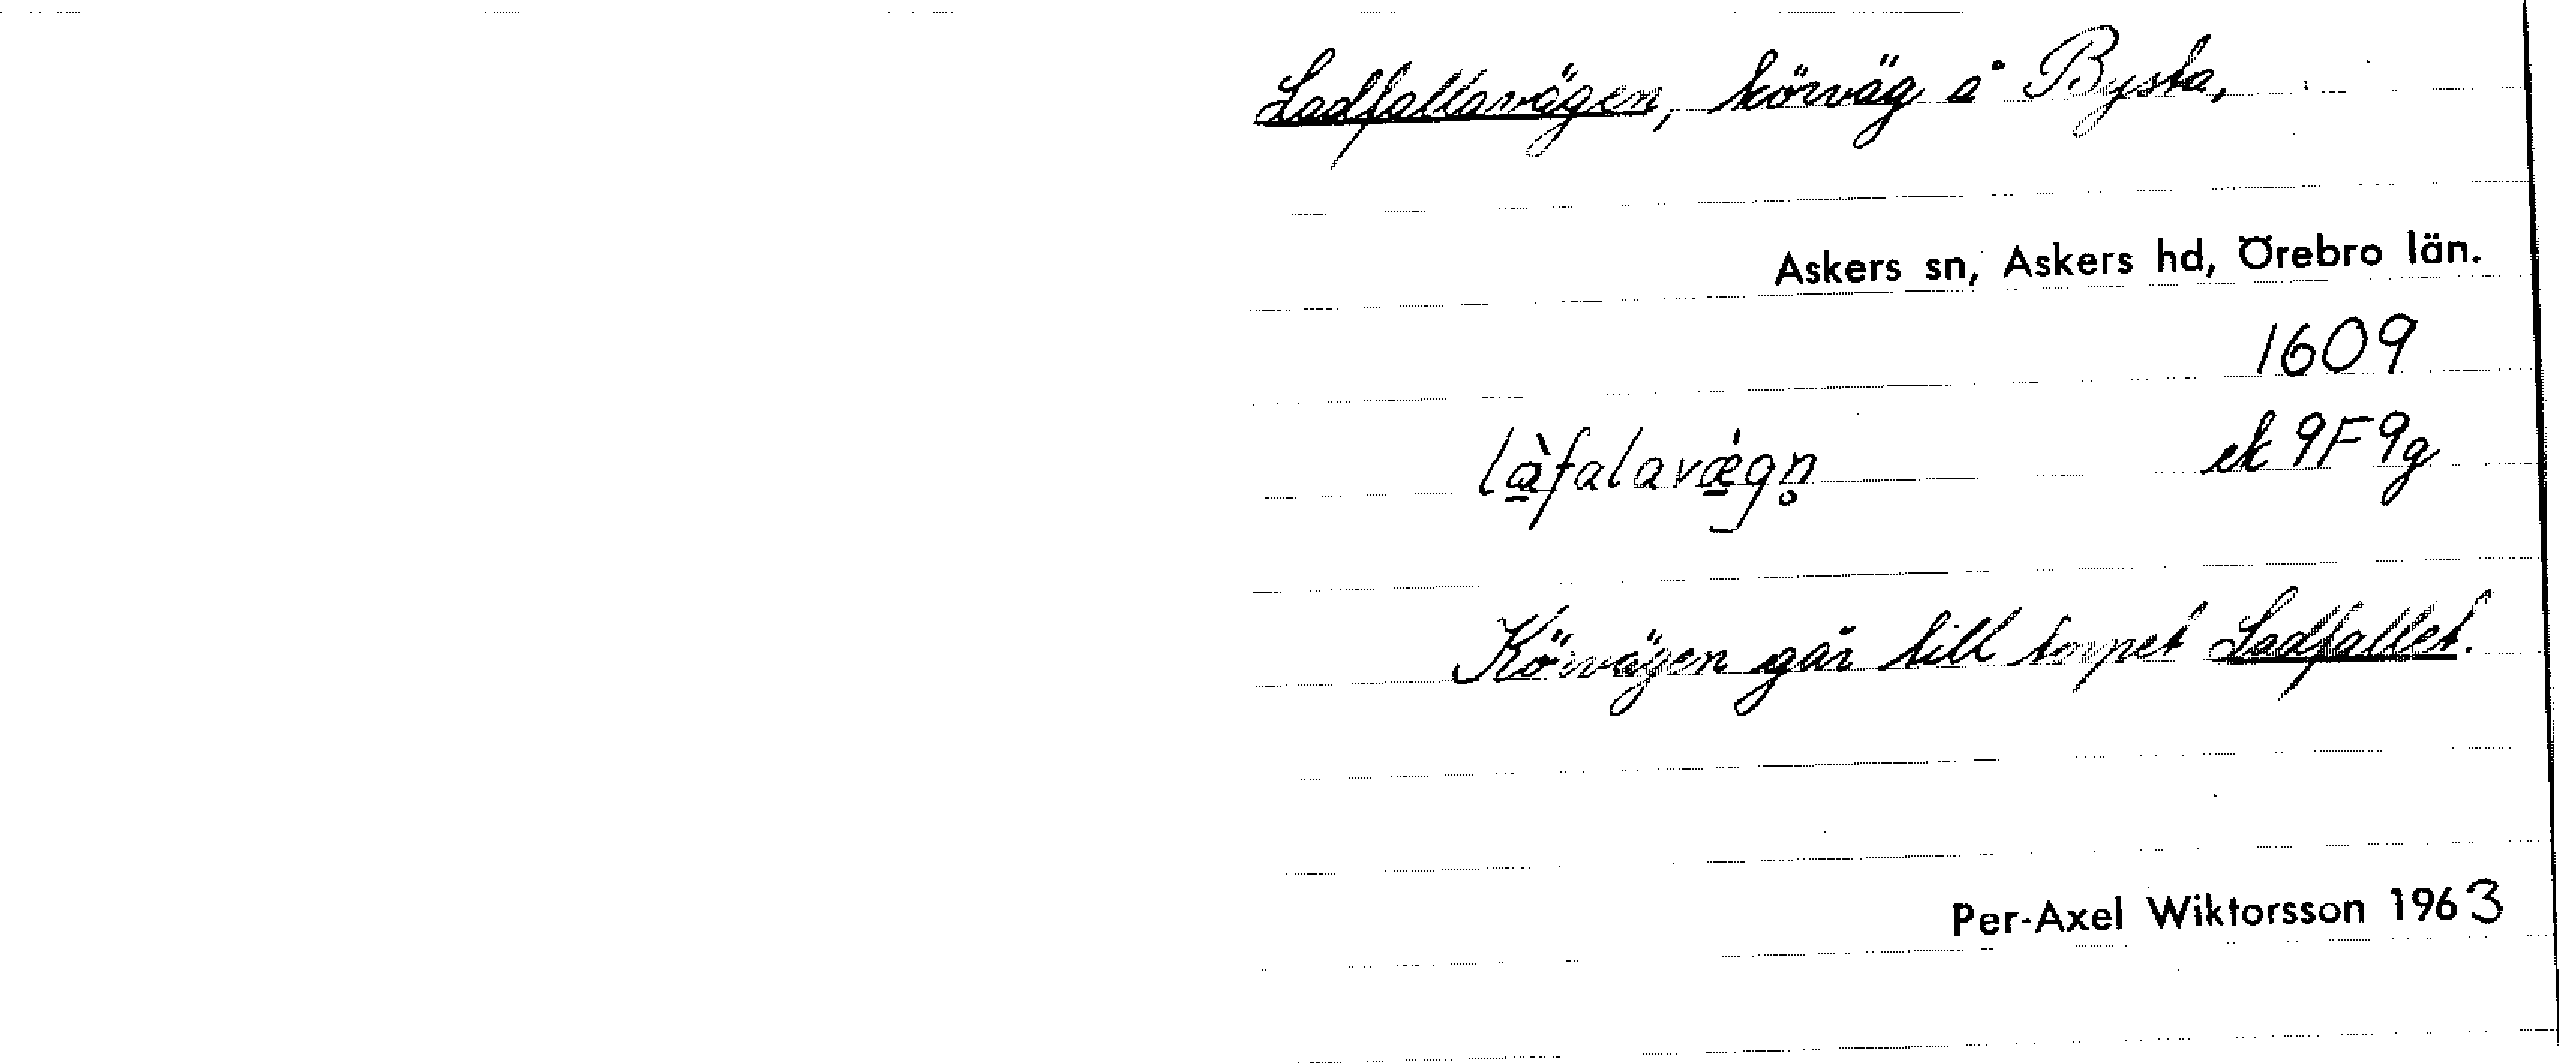 Ladfallavägen, körväg å Bysta,
Askers sn, Askers hd, Örebro län.
1609
là̱falavæ̱̀gn̥ ek 9F9g
Körvägen går till torpet Ladfallet.
Per-Axel Wiktorsson 1963